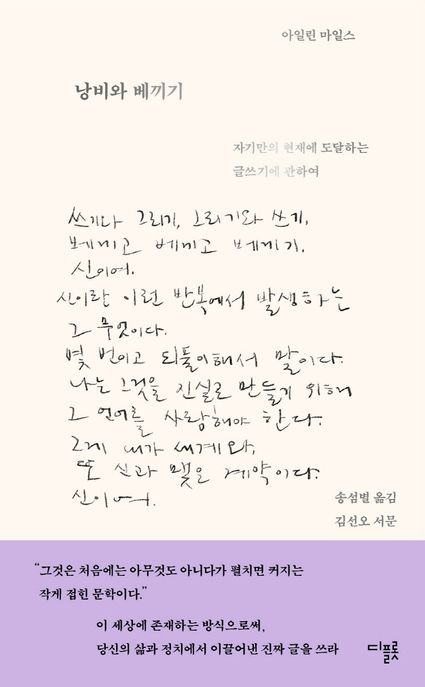 아일린 마일스
낭비와 베끼기
자기만의 현재에 도달하는
글쓰기에 관하여
쓰기다 그리기, 그리기와 쓰기,
베끼고 베끼고 베끼기.
신이여.
신이란 이런 반복에서 발생하는
그 무엇이다.
몇 번이고 되풀이해서 말이다.
나는 그것을 진실로 만들기 위해
그 언어를 사랑해야 한다.
그게 내가 세계와,
또 신과 맺은 계약이다.
신이여.
송섬별 옮김
김선오 서문
“그것은 처음에는 아무것도 아니다가 펼치면 커지는
작게 접힌 문학이다.”
이 세상에 존재하는 방식으로써,
당신의 삶과 정치에서 이끌어낸 진짜 글을 쓰라
디플롯